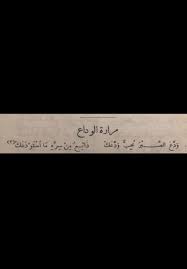 مرارة الوداع
وَدَّعَ الصَّبْرَ مُحِبٌّ وَدَّعَكْ ذَائِعٌ مِنْ سِرِّهِ مَا اسْتَوْدَعَكْ(٢)